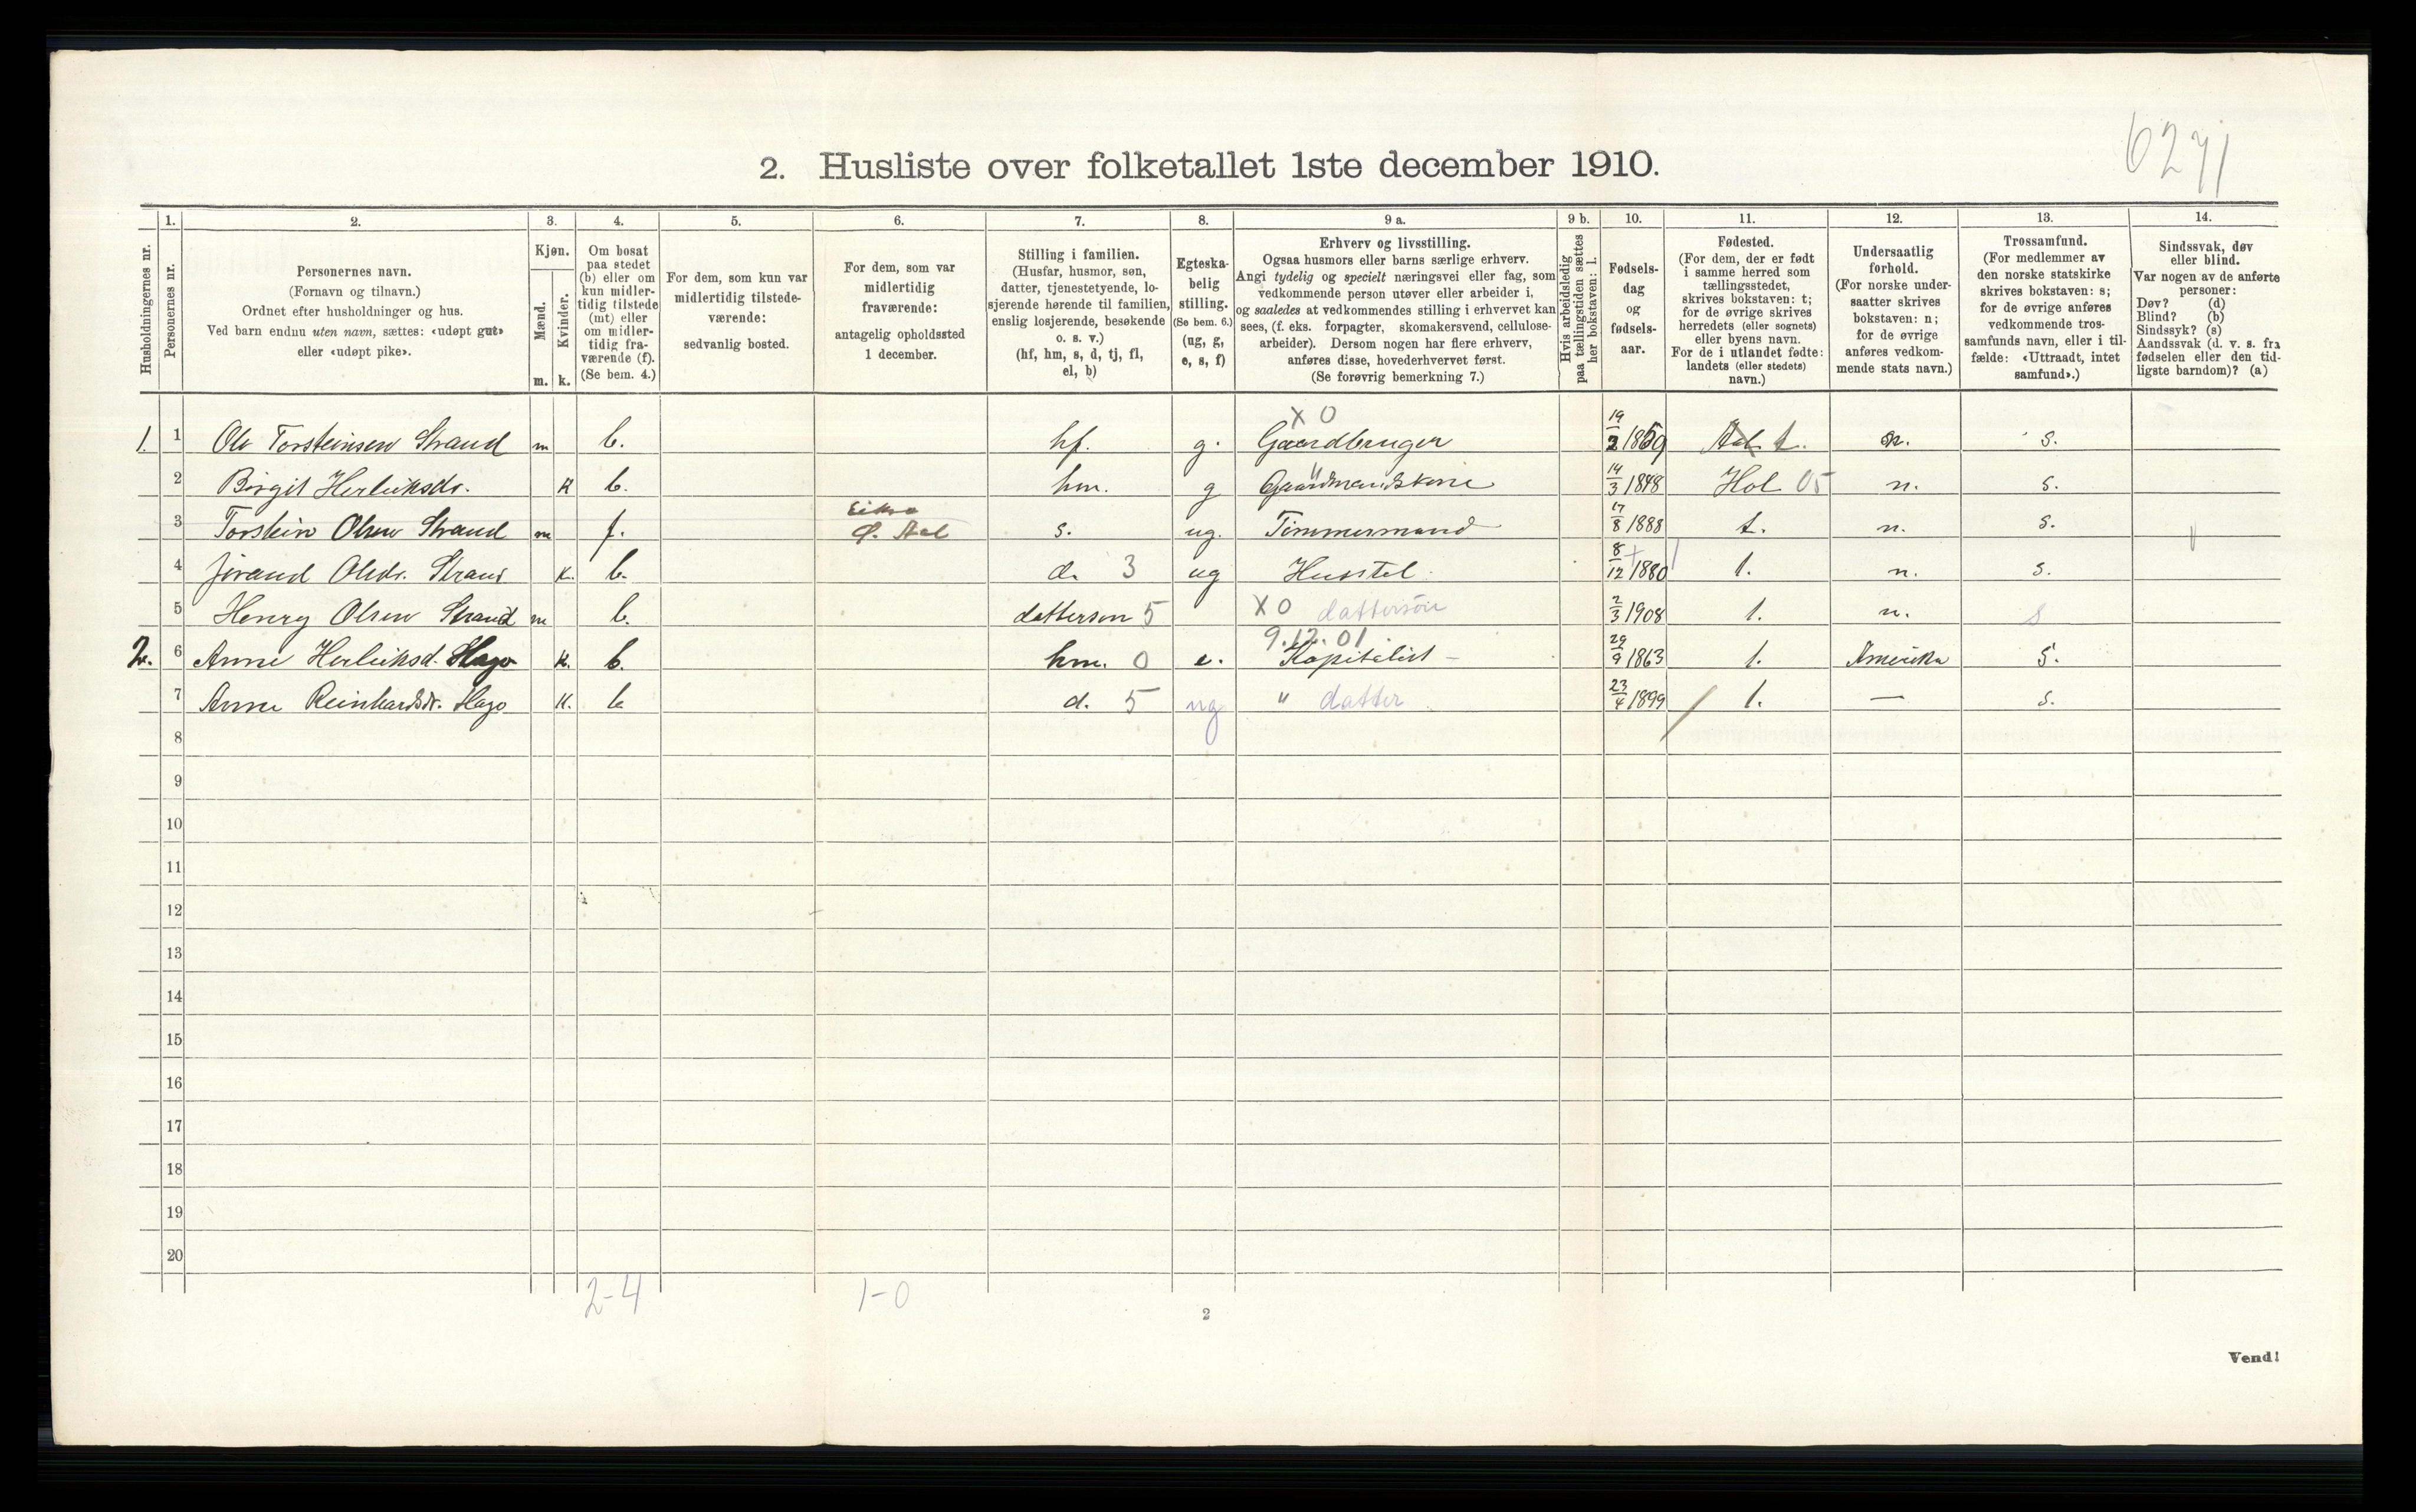 6271
2. Husliste over folketallet 1ste december 1910.
Husholdningernes nr.
1.
Personernes nr.
2.
Personernes navn.
(Fornavn og tilnavn.)
Ordnet efter husholdninger og hus.
Ved barn endnu uten navn, sættes: «udøpt gut»
eller «udøpt pike».
3.
Kjøn.
Mænd.
Kvinder.
m. k.
4.
Om bosat
paa stedet
(b) eller om
kun midler-
tidig tilstede
(mt) eller
om midler-
tidig fra-
værende (f).
(Se bem. 4.)
5.
For dem, som kun var
midlertidig tilstede-
værende:
sedvanlig bosted.
6.
For dem, som var
midlertidig
fraværende:
antagelig opholdssted
1 december.
7.
Stilling i familien.
(Husfar, husmor, søn,
datter, tjenestetyende, lo-
sjerende hørende til familien,
enslig losjerende, besøkende
o. s. v.)
(hf, hm, s, d, tj, fl,
el, b)
8.
Egteska-
belig
stilling.
(Se bem. 6.)
(ug, g,
e, s, f)
9 a.
Erhverv og livsstilling.
Ogsaa husmors eller barns særlige erhverv.
Angi tydelig og specielt næringsvei eller fag, som
vedkommende person utøver eller arbeider i,
og saaledes at vedkommendes stilling i erhvervet kan
sees, (f. eks. forpagter, skomakersvend, cellulose-
arbeider). Dersom nogen har flere erhverv,
anføres disse, hovederhvervet først.
(Se forøvrig bemerkning 7.)
9 b.
Hvis arbeidsledig
paa tællingstiden sættes
her bokstaven: l.
10.
Fødsels-
dag
og
fødsels-
aar.
11.
Fødested.
(For dem, der er født
i samme herred som
tællingsstedet,
skrives bokstaven: t;
for de øvrige skrives
herredets (eller sognets)
eller byens navn.
For de i utlandet fødte:
landets (eller stedets)
navn.)
12.
Undersaatlig
forhold.
(For norske under-
saatter skrives
bokstaven: n;
for de øvrige
anføres vedkom-
mende stats navn.)
13.
Trossamfund.
(For medlemmer av
den norske statskirke
skrives bokstaven: s;
for de øvrige anføres
vedkommende tros-
samfunds navn, eller i til-
fælde: «Uttraadt, intet
samfund».)
14.
Sindssvak, døv
eller blind.
Var nogen av de anførte
personer:
Døv? (d)
Blind? (b)
Sindssyk? (s)
Aandssvak (d. v. s. fra
fødselen eller den tid-
ligste barndom)? (a)
X 0
1. 1 Ole Torsteinsen Strand m b. hf. g. Gaardbruger 19/2 1859 Aal t. n. s.
2 Birgit Herleiksdr. K b. hm. g Gaardmandskone 14/3 1848 Hol 05 n. s.
3 Torstein Olsen Strand m f. Ø. Aal s. ug. Timmermand 17/8 1888 t. n. s.
4 Jørand Olsdr. Strand K. b. d. 3 ug Husstel 8/12 1880 t. n. s.
5 Henry Olsen Strand m b. datterson 5 X 0 dattersøn 2/3 1908 t. n. s
9.12.01.
2. 6 Anne Herleiksd. Hago K. b. hm. 0 e. Kapitalist 29/9 1863 t. Amerika s.
7 Anne Reinhardsdr. Hago K. b d. 5 ug " datter 23/4 1899 t. — s.
8
9
10
11
12
13
14
15
16
17
18
19
20
2-4 1-0
2
Vend!